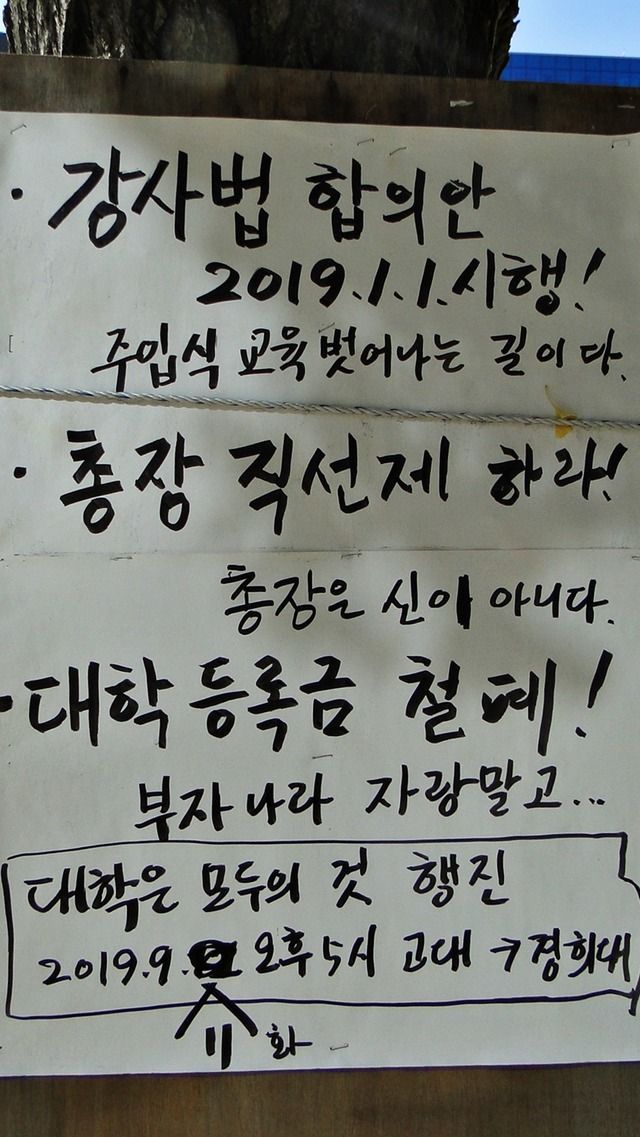 · 강사법 합의안
2019.1.1.시행!
주입식 교육 벗어나는 길이다.
· 총장 직선제 하라!
총장은 신이 아니다.
· 대학 등록금 철폐!
부자나라 자랑말고...
대학은 모두의 것 행진
2019.9. 오후 5시 고대 → 경희대
11 화